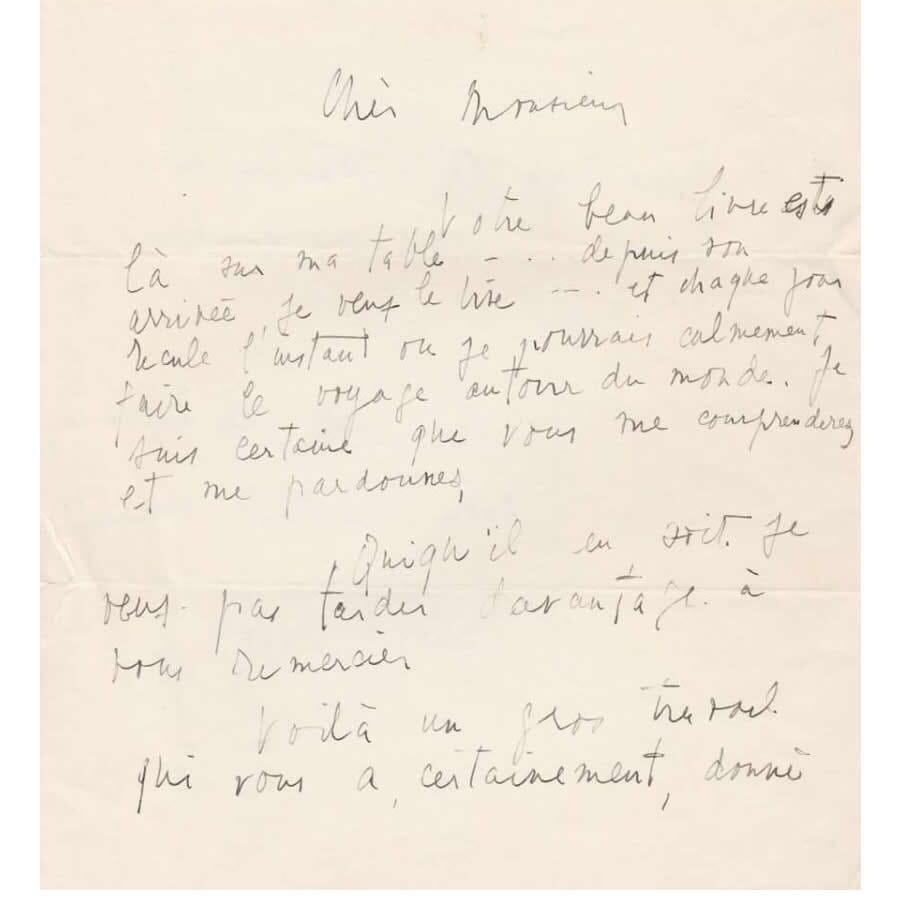 Chèr Monsieur
Votre beau livre est
là sur ma table - . . depuis son
arrivée, je veux le lire --- . et chaque jour
recule l'instant ou je pourrais calmement,
faire le voyage autour du monde. Je
suis certaine que vous me comprenderez
et me pardonnez,
Quiqu'il en soit. Je
veux. pas tarder davantage. à
vous remercier
Voilà un gros travail.
qui vous a, certainement, donné